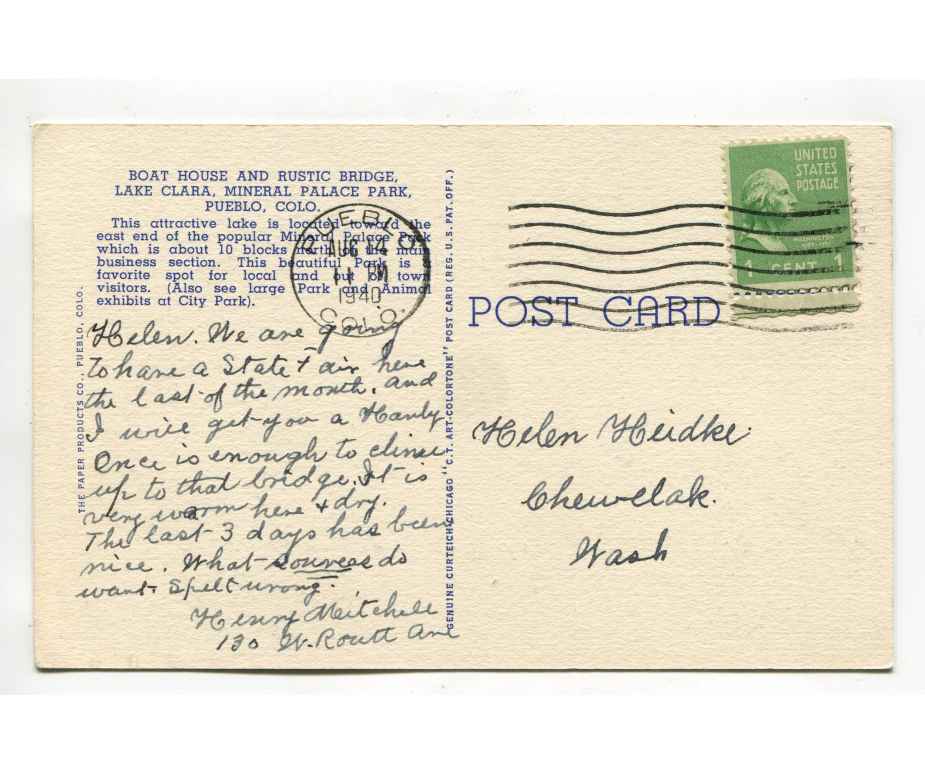 BOAT HOUSE AND RUSTIC BRIDGE,
LAKE CLARA, MINERAL PALACE PARK,
PUEBLO, COLO.
This attractive lake is located toward the
east end of the popular Mineral Palace Park
which is about 10 blocks north of the main
business section. This beautiful Park is a
favorite spot for local and out of town
visitors. (Also see large Park and Animal
exhibits at City Park).
Helen. We are going
to have a State Fair here
the last of the month. and
I will get you a
Once is enough to climb
up to that bridge. It is
very warm here & dry.
The last 3 days has been
nice. What souvees do
want. Spelt wrong.
Henry Mitchell
130 W. Routt Ave
THE PAPER PRODUCTS CO., PUEBLO, COLO.
GENUINE CURTEICH-CHICAGO "C.T. ART-COLORTONE" POST CARD (REG. U.S. PAT. OFF.)
PUEBLO
AUG 14
PM
1940
COLO.
UNITED
STATES
POSTAGE
WASHINGTON
1 CENT 1
POST CARD
Helen Heidke.
Chewelak.
Wash